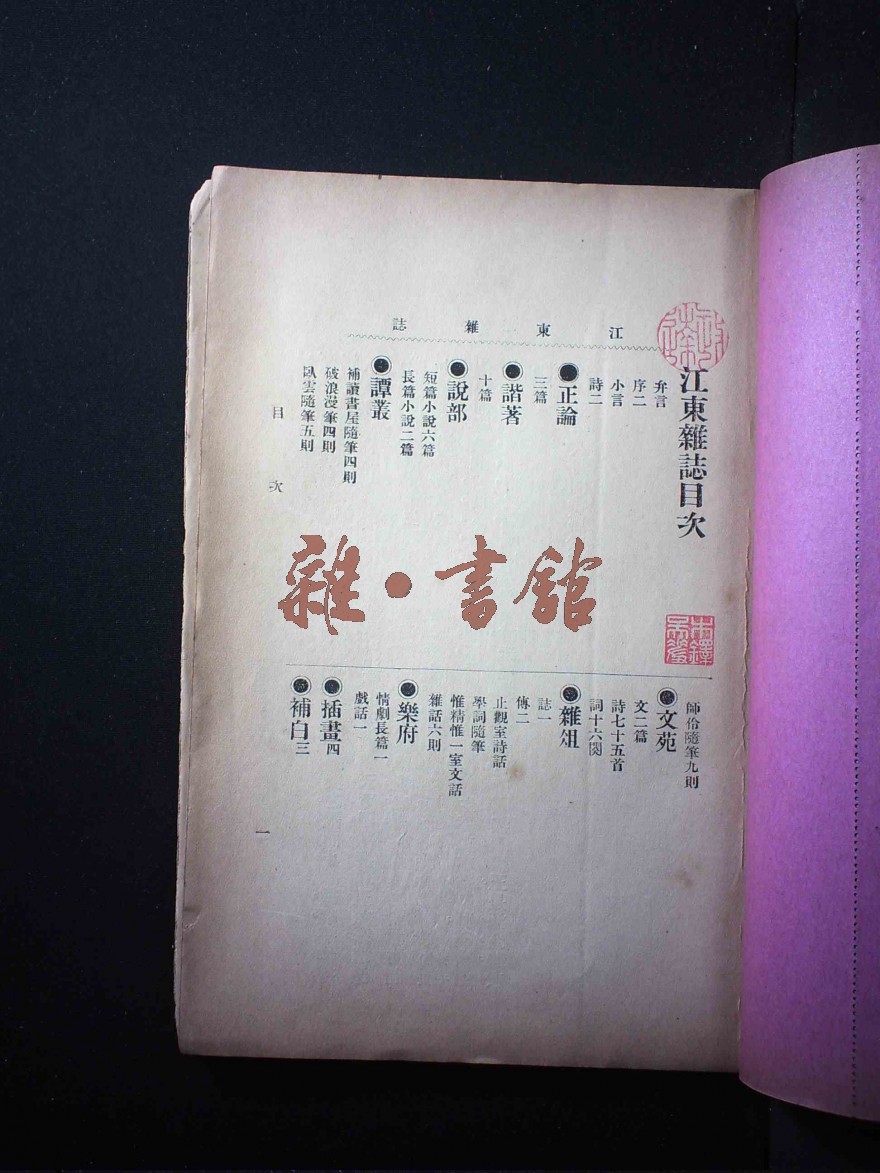 江東雜誌
江東雜誌目次
弁言
序二
小言
詩二
●正論
三篇
●諧著
十篇
●說部
短篇小說六篇
長篇小說二篇
●譚叢
補讀書屋隨筆四則
破浪漫筆四則
臥雲隨筆五則
師俗隨筆九則
●文苑
文二篇
詩七十五首
詞十六闋
●雜俎
誌一
傳二
止觀室詩話
學詞隨筆
惟精惟一室文話
雜話六則
●樂府
情劇長篇一
戲話一
●插畫四
●補白三
目次
一
雜·書館